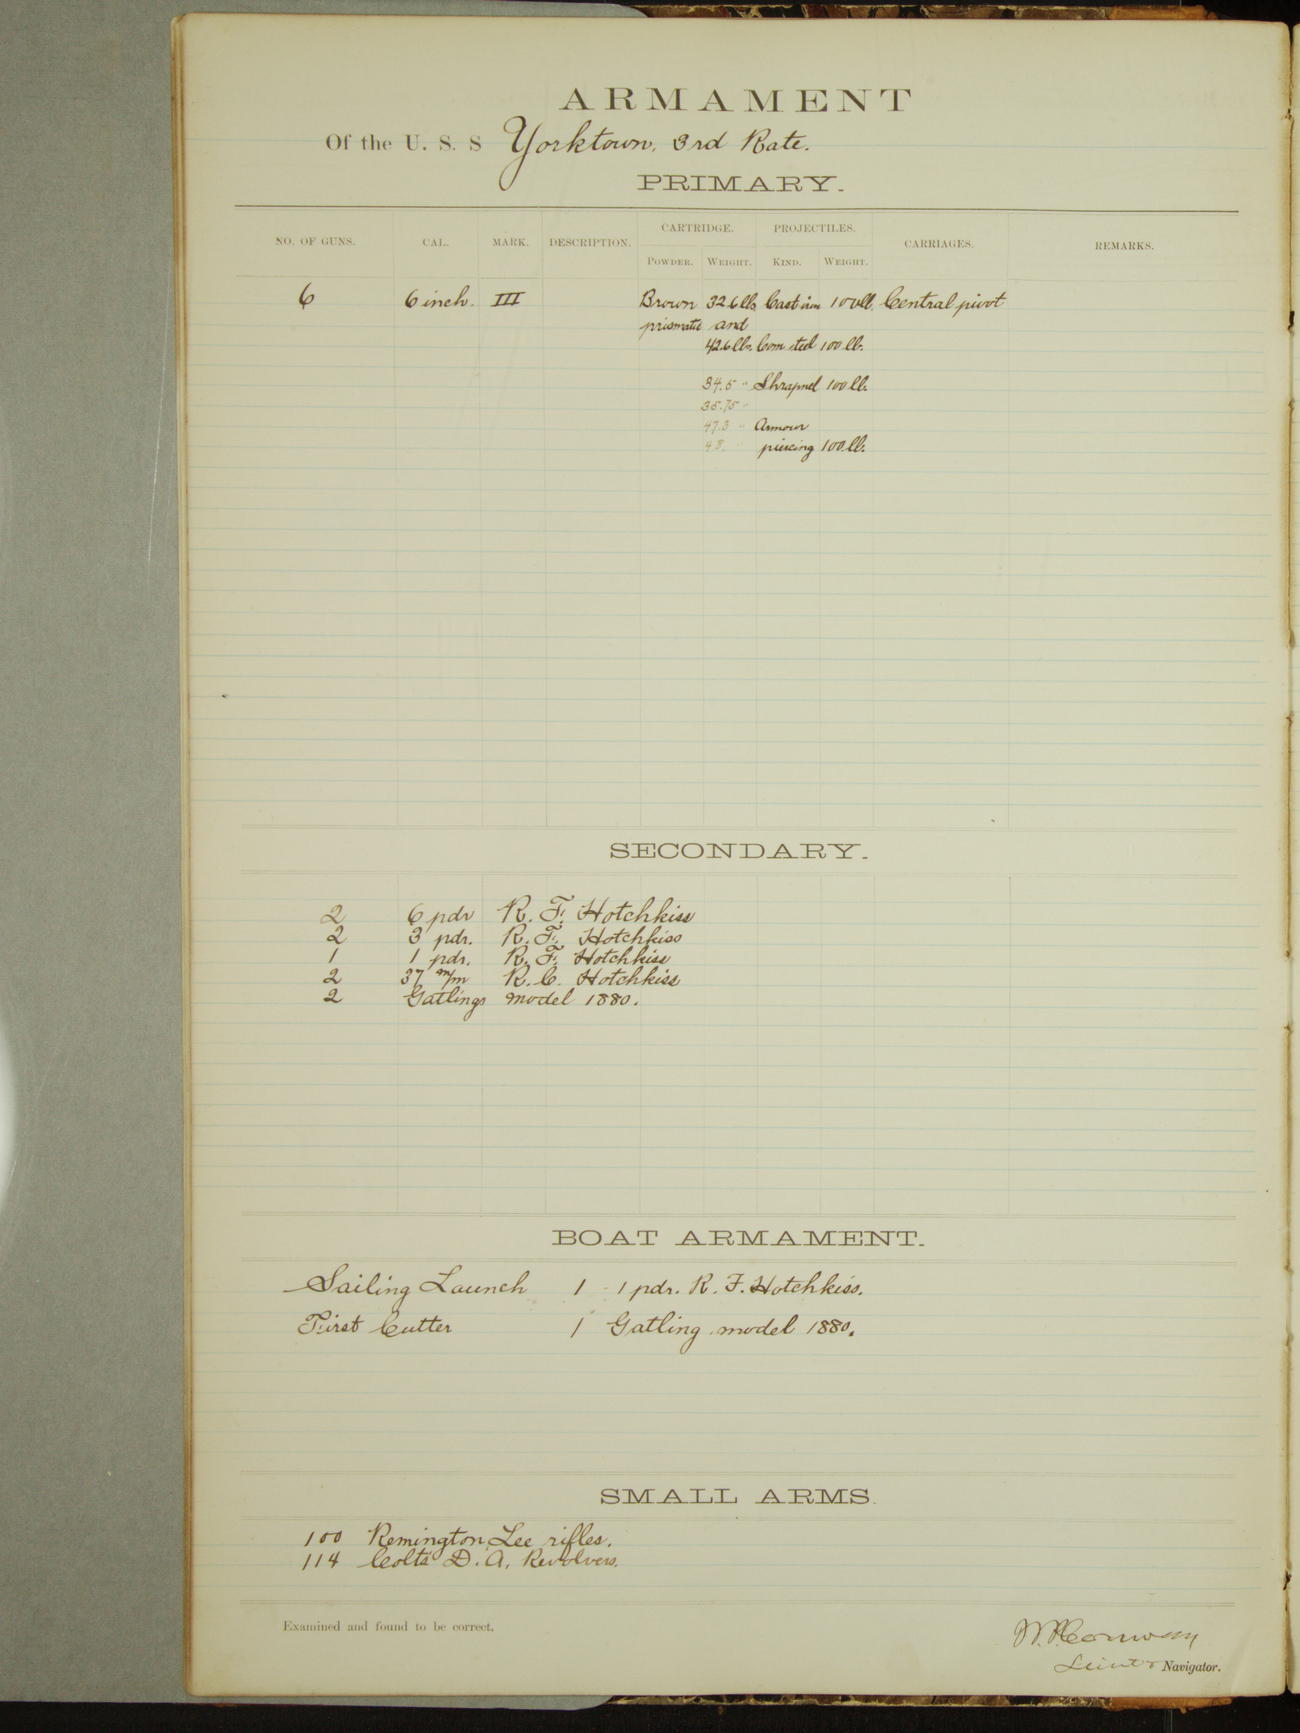 ARMAMENT
Of the U. S. S Yorktown, 3rd Rate.
PRIMARY.
NO. OF GUNS. CAL. MARK. DESCRIPTION. CARTRIDGE. PROJECTILES. CARRIAGES. REMARKS.
POWDER. WEIGHT. KIND. WEIGHT.
6 6 inch. III Brown 32.6 lbs Cast iron 100 lb. Central pivot
prismatic and
42.6 lbs. Com steel 100 lb.
34.5 " Shrapnel 100 lb.
35.75 "
47.3 " Armour
48. " piercing 100 lb.
SECONDARY.
2 6 pdr R. F. Hotchkiss
2 3 pdr. R. F. Hotchkiss
1 1 pdr. R. F. Hotchkiss
2 37 m/m R. C. Hotchkiss
2 Gatlings model 1880.
BOAT ARMAMENT.
Sailing Launch 1 1 pdr. R. F. Hotchkiss.
First Cutter 1 Gatling model 1880.
SMALL ARMS.
100 Remington Lee rifles.
114 Colts D. A. Revolvers.
Examined and found to be correct.
Navigator.